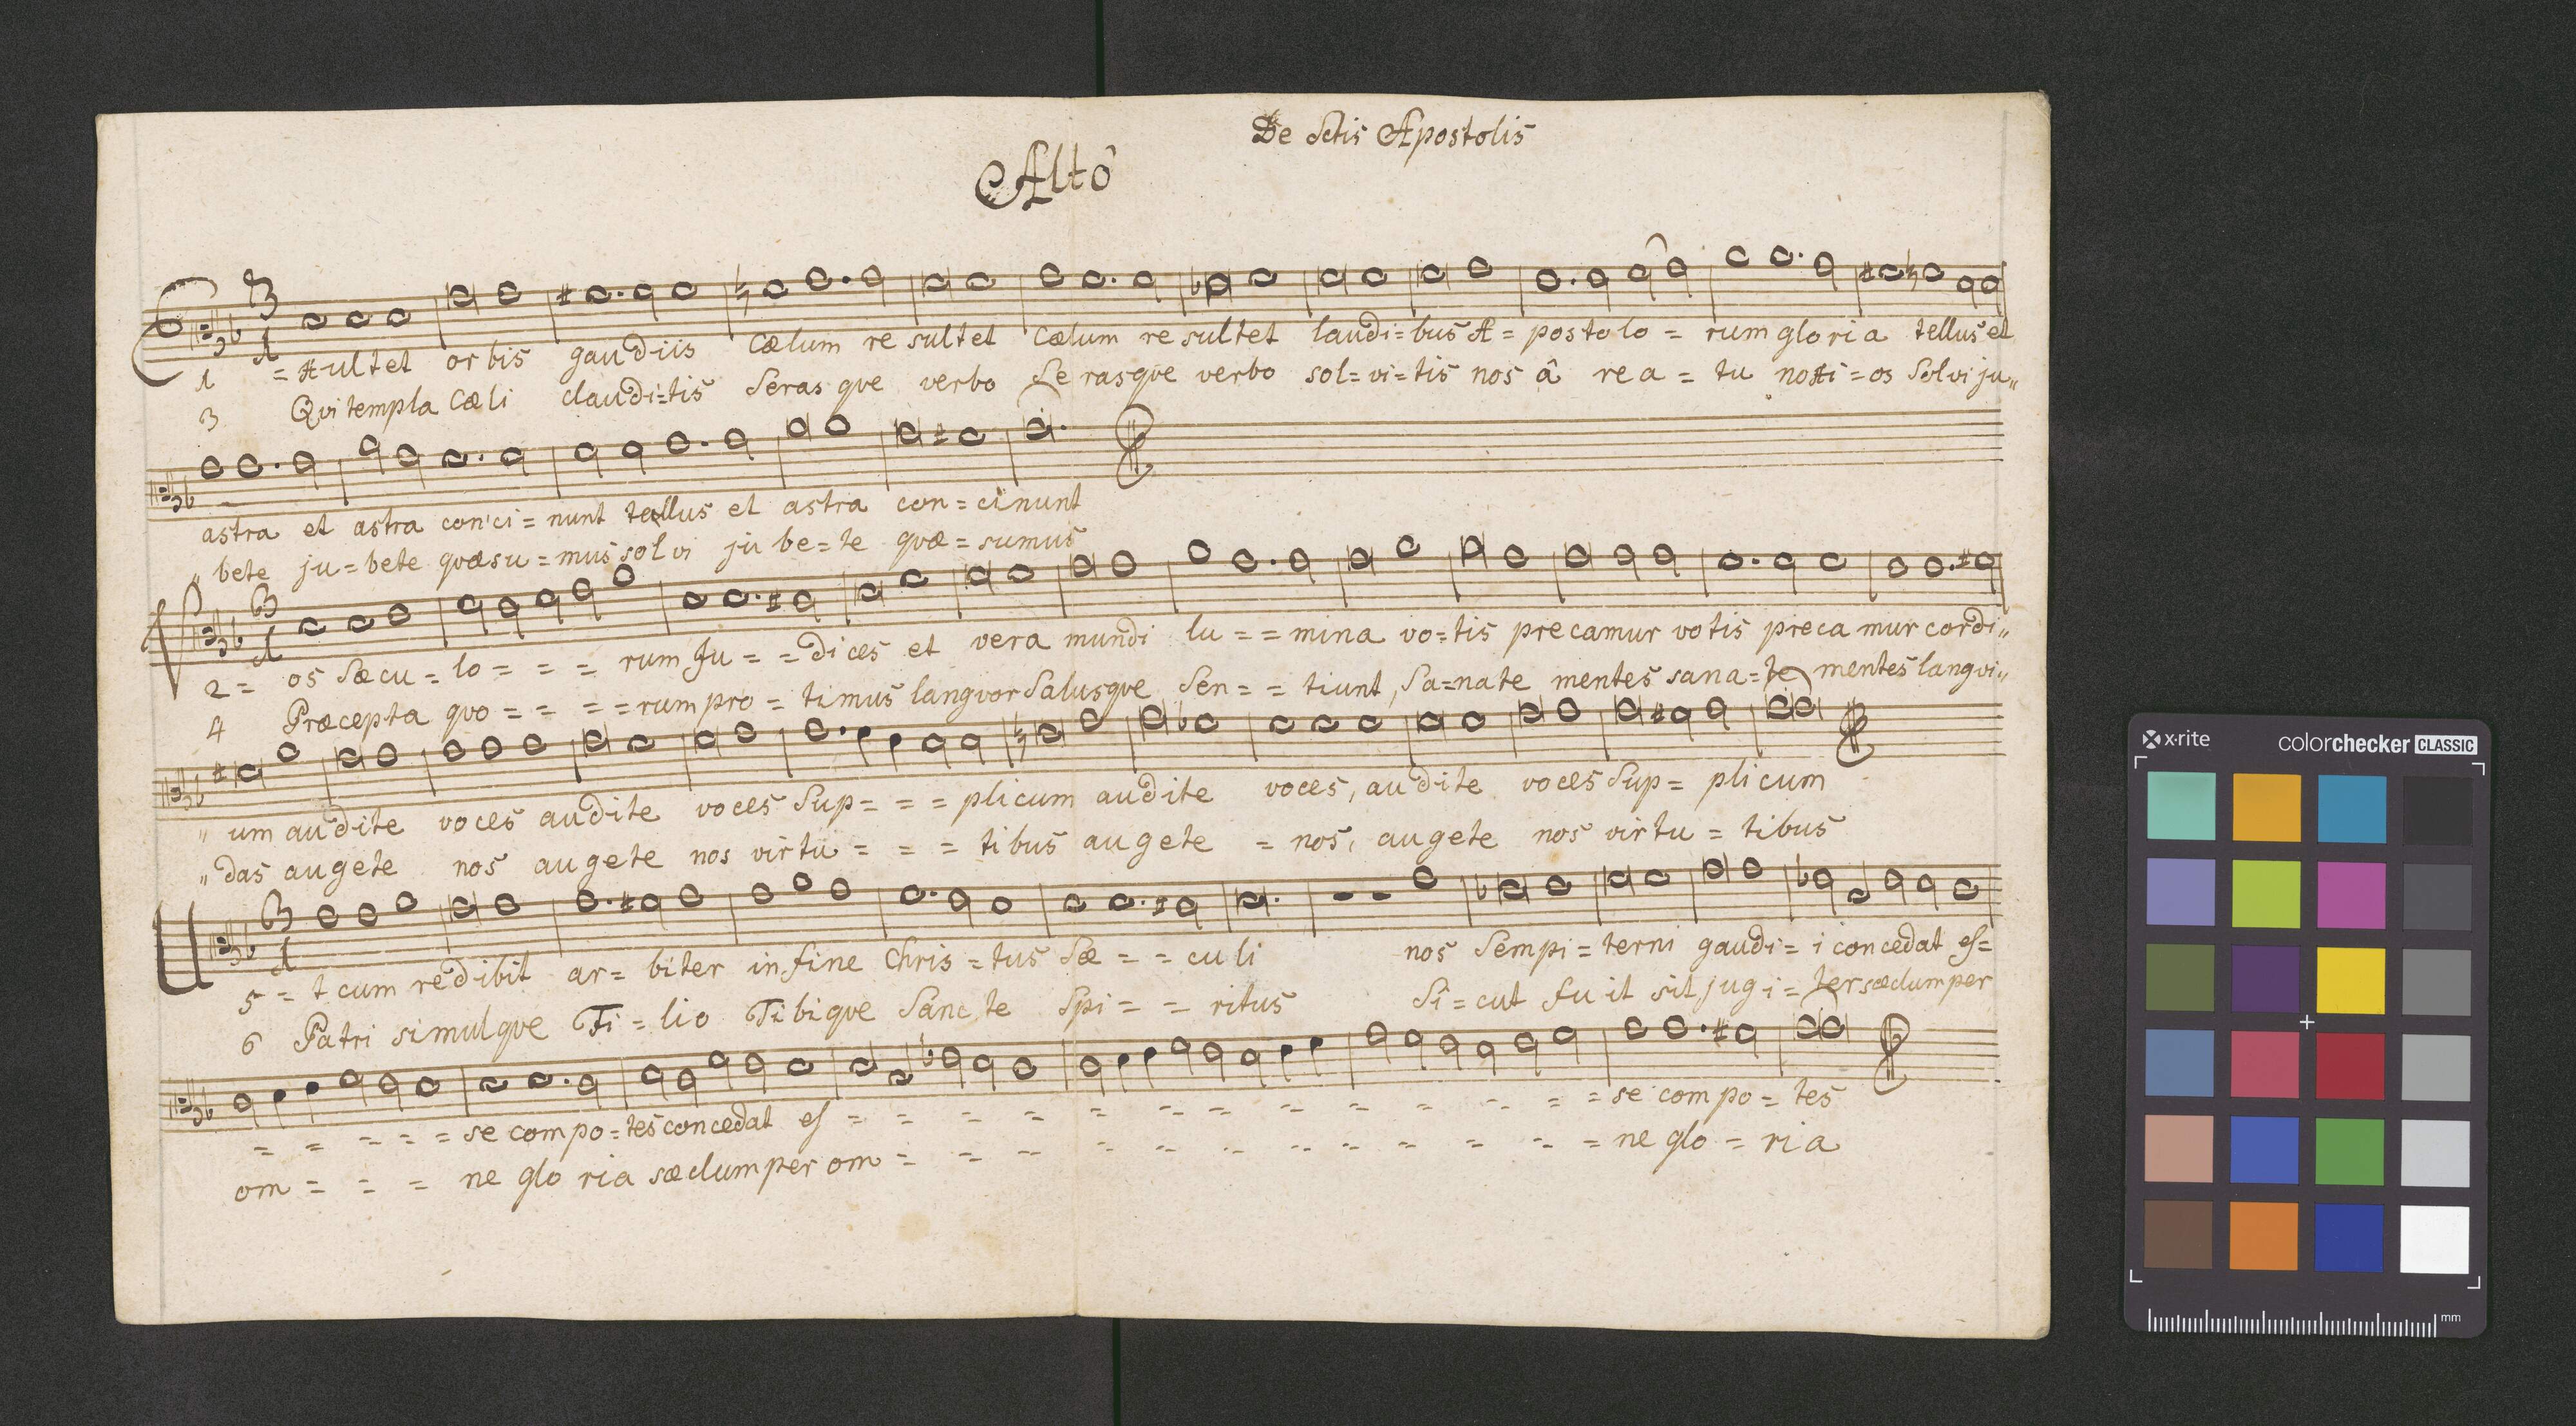 De Sctis Apostolis
Alto
E 3 1
1 = xultet orbis gaudiis Cælum re sultet Cælum re sultet laudi=bus A=postolo = rum gloria tellus et
3 Qvi templa Cæli claudi=tis Seras qve verbo Se rasqve verbo sol=vi=tis nos â rea = tu noxi=os Solvi ju„
astra et astra con ci=nunt tellus et astra con=cinunt
„bete ju=bete qvæsu=mus solvi ju be=te qvæ=sumus
V 3 1
2 = os Sæcu=lo = = = rum Ju = = dices et vera mundi lu = = mina vo=tis precamur votis preca mur cordi„
4 Præcepta qvo = = = = rum pro = timus langvor Salusqve Sen = = tiunt, Sa=nate mentes sana=te mentes langvi„
„um audite voces audite voces Sup = = = plicum audite voces, audite voces Sup = plicum
„das augete nos augete nos virtu = = = tibus augete = nos, augete nos virtu = tibus
U 3 1
5 = t cum redibit ar = biter in fine Chris=tus Sæ = = culi nos Sempi=terni gaudi=i concedat es=
6 Patri simulqve Fi=lio Tibiqve Sancte Spi = = ritus Si=cut fuit sit jugi=ter sæclum per
= = = = = se compo=tes concedat es = = = = = = = = = = = = = se compo=tes
om = = = ne gloria sæclum per om = = = = = = = = = = = = ne glo = ria
x·rite colorchecker CLASSIC
mm